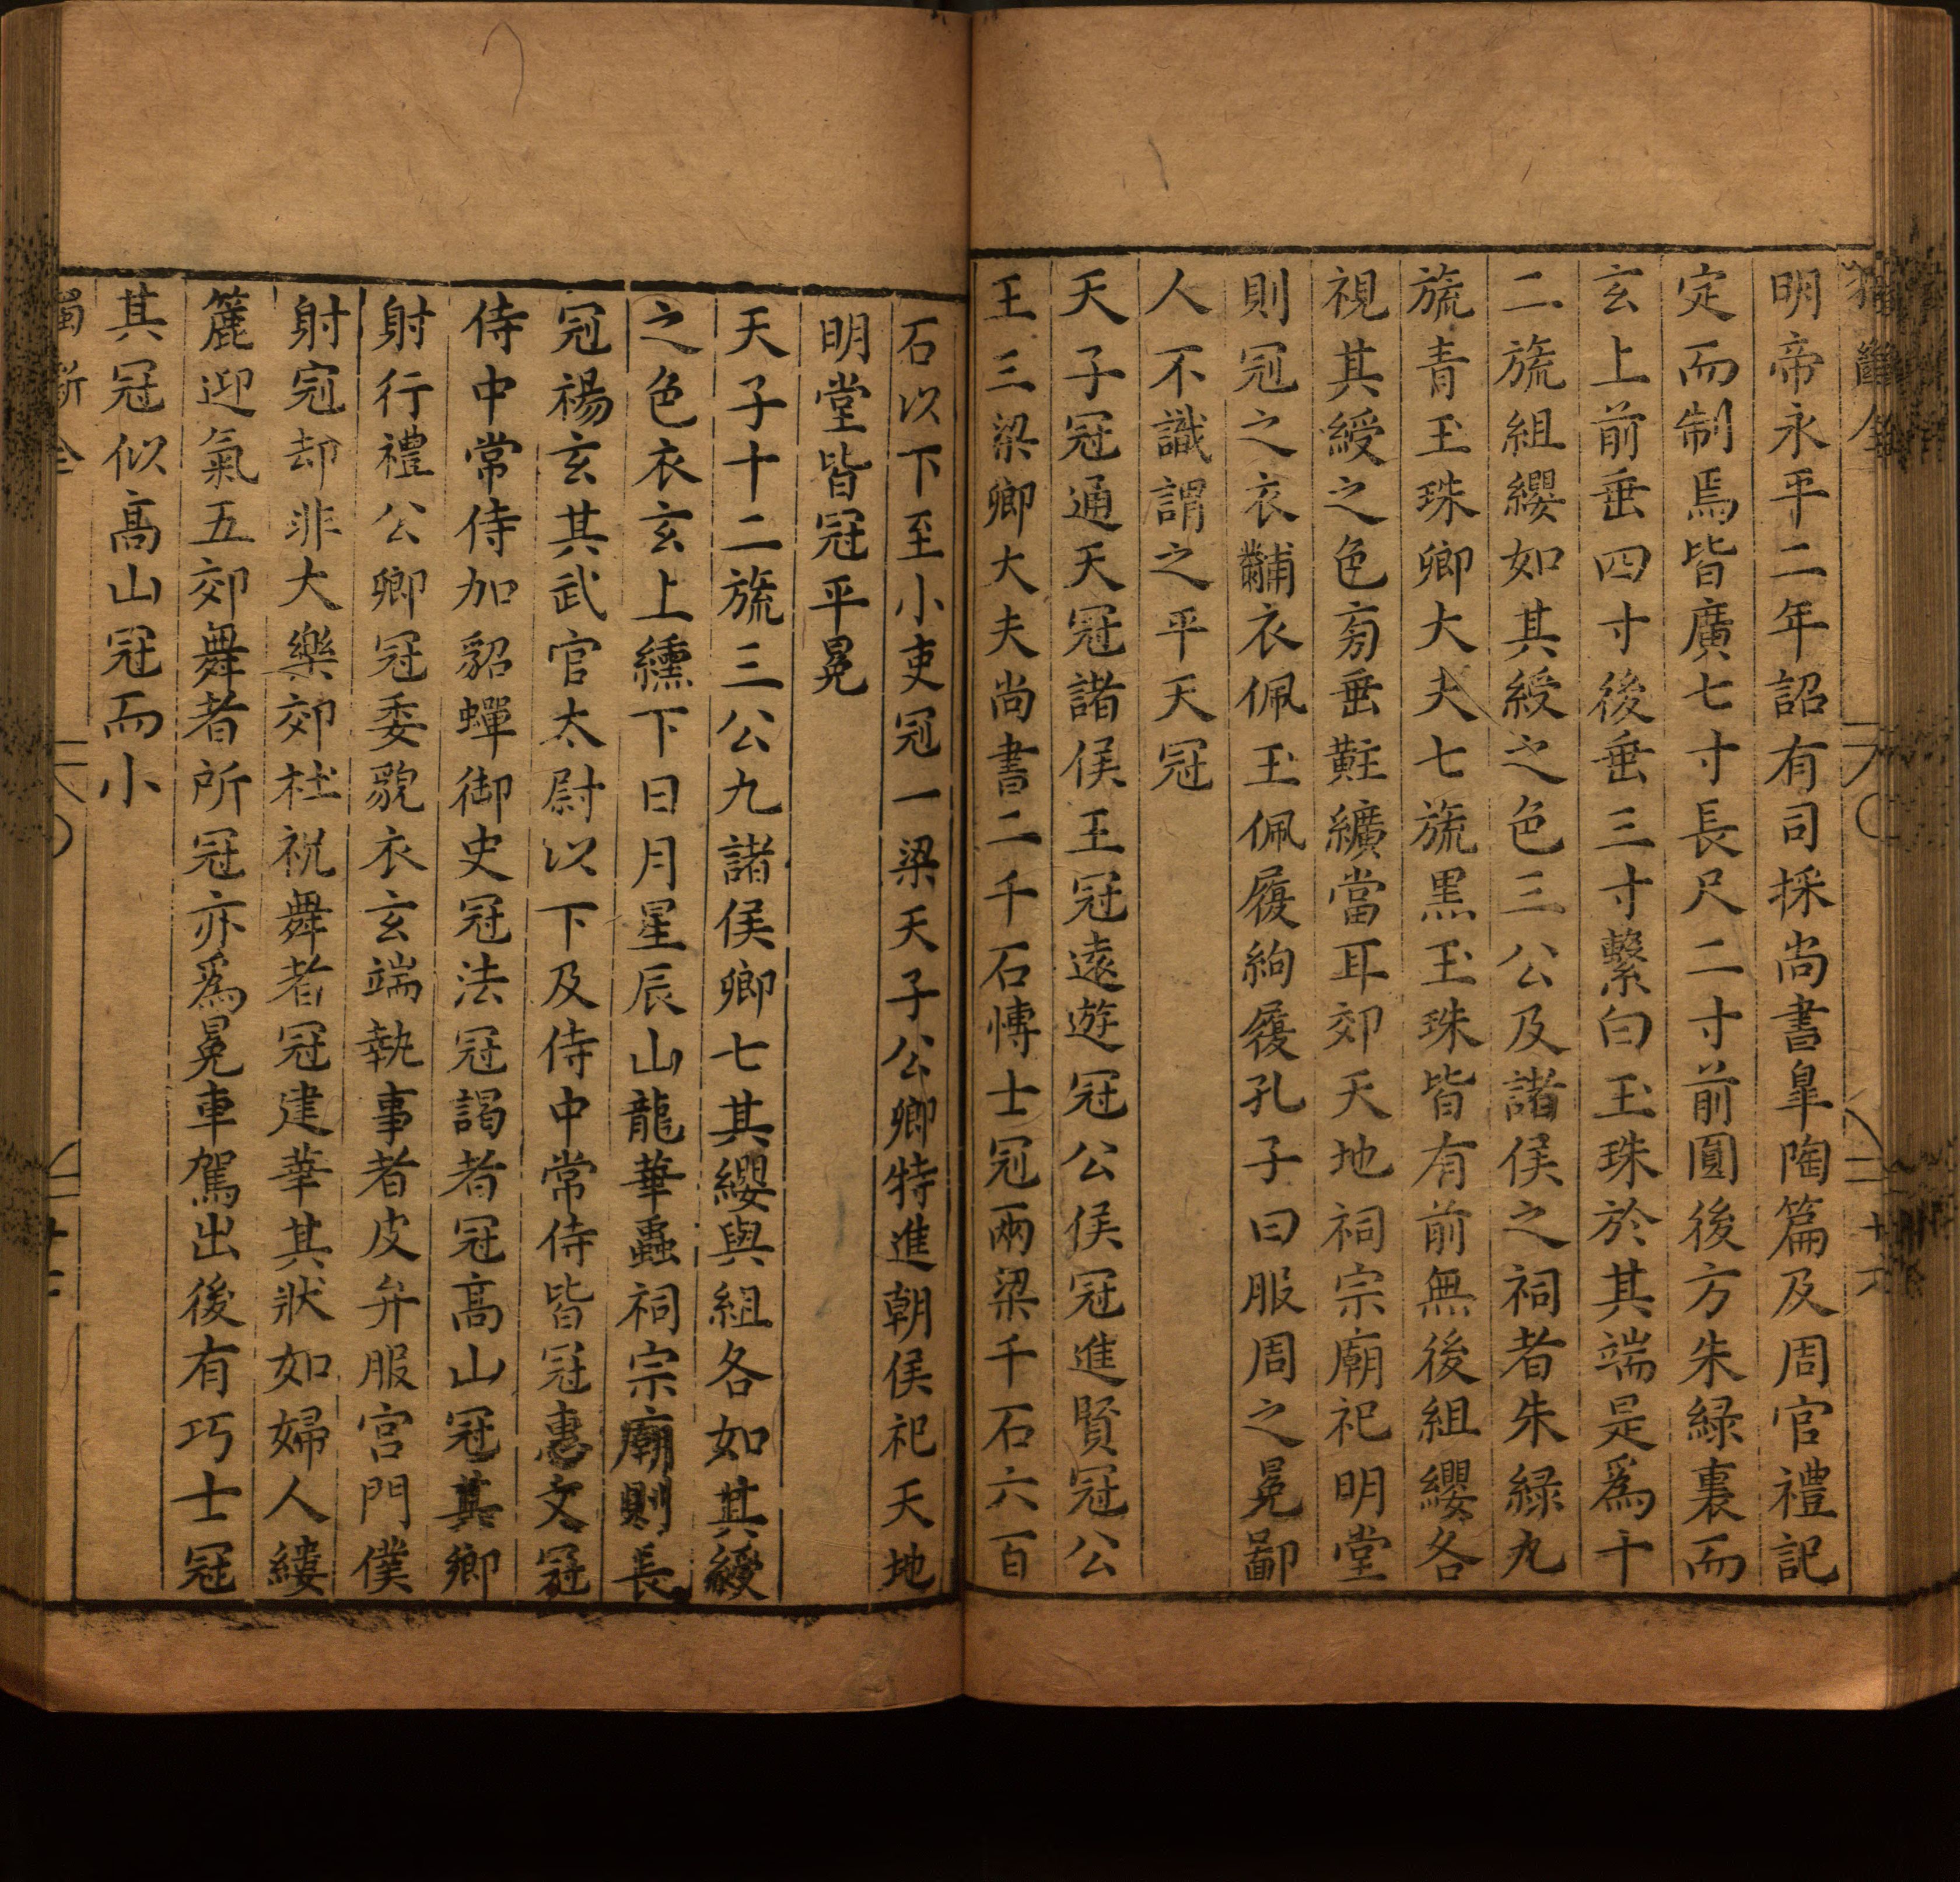 明帝永平二年詔有司採尚書臯陶篇及周官禮記
定而制焉皆廣七寸長尺二寸前圓後方朱緑裏而
玄上前垂四寸後垂三寸繫白玉珠於其端是爲十
二旒組纓如其綬之色三公及諸侯之祠者朱緑九
旒青玉珠卿大夫七旒黒玉珠皆有前無後組纓各
視其綬之色旁垂黈纊當耳郊天地祠宗廟祀明堂
則冠之衣黼衣佩玉佩履絇履孔子曰服周之冕鄙
人不識謂之平天冠
天子冠通天冠諸侯王冠遠遊冠公侯冠進賢冠公
王三梁卿大夫尚書二千石愽士冠兩梁千石六百
石以下至小吏冠一梁天子公卿特進朝侯祀天地
明堂皆冠平冕
天子十二旒三公九諸侯卿七其纓與組各如其綬
之色衣玄上纁下日月星辰山龍華蟲祠宗廟則長
冠裼玄其武官太尉以下及侍中常侍皆冠惠文冠
侍中常侍加貂蟬御史冠法冠謁者冠高山冠其鄉
射行禮公卿冠委貌衣玄端執事者皮弁服宫門僕
射冠却非大樂郊社祝舞者冠建華其狀如婦人縷
簏迎氣五郊舞者所冠亦爲冕車駕出後有巧士冠
其冠似高山冠而小
獨斷 全